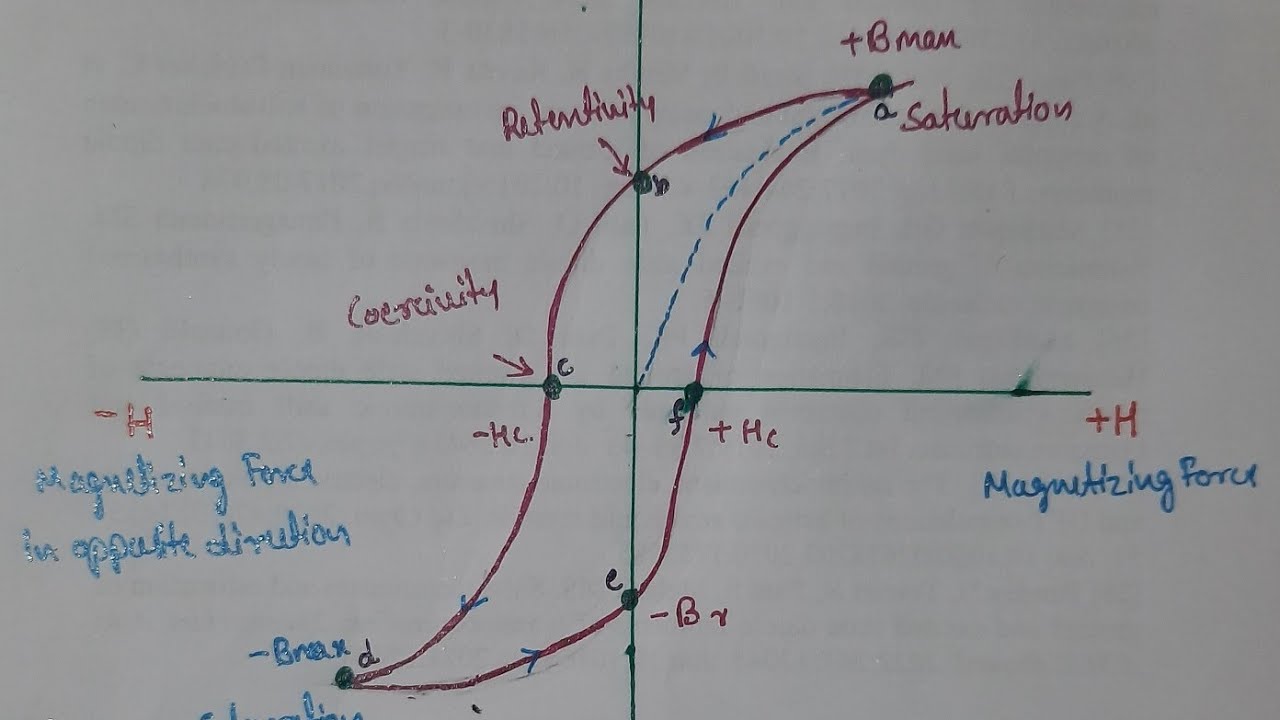 +Bmax
Retentivity
a
Saturation
b
Coercivity
c
-H
-Hc.
f
+Hc
+H
Magnetizing Force
in opposite dirution
Magnetizing Force
e
-Br
-Bmax
d
Saturation